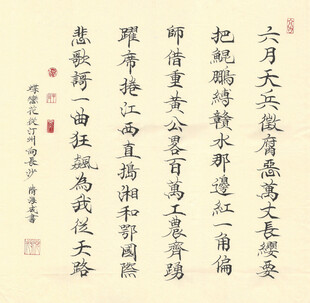 六月天兵徵腐惡萬丈長纓要
把鯤鵬縛贛水那邊紅一角偏
師借重黃公畧百萬工農齊踴
躍席捲江西直搗湘和鄂國際
悲歌謌一曲狂飆為我從天路
蝶戀花從汀州向長沙 書